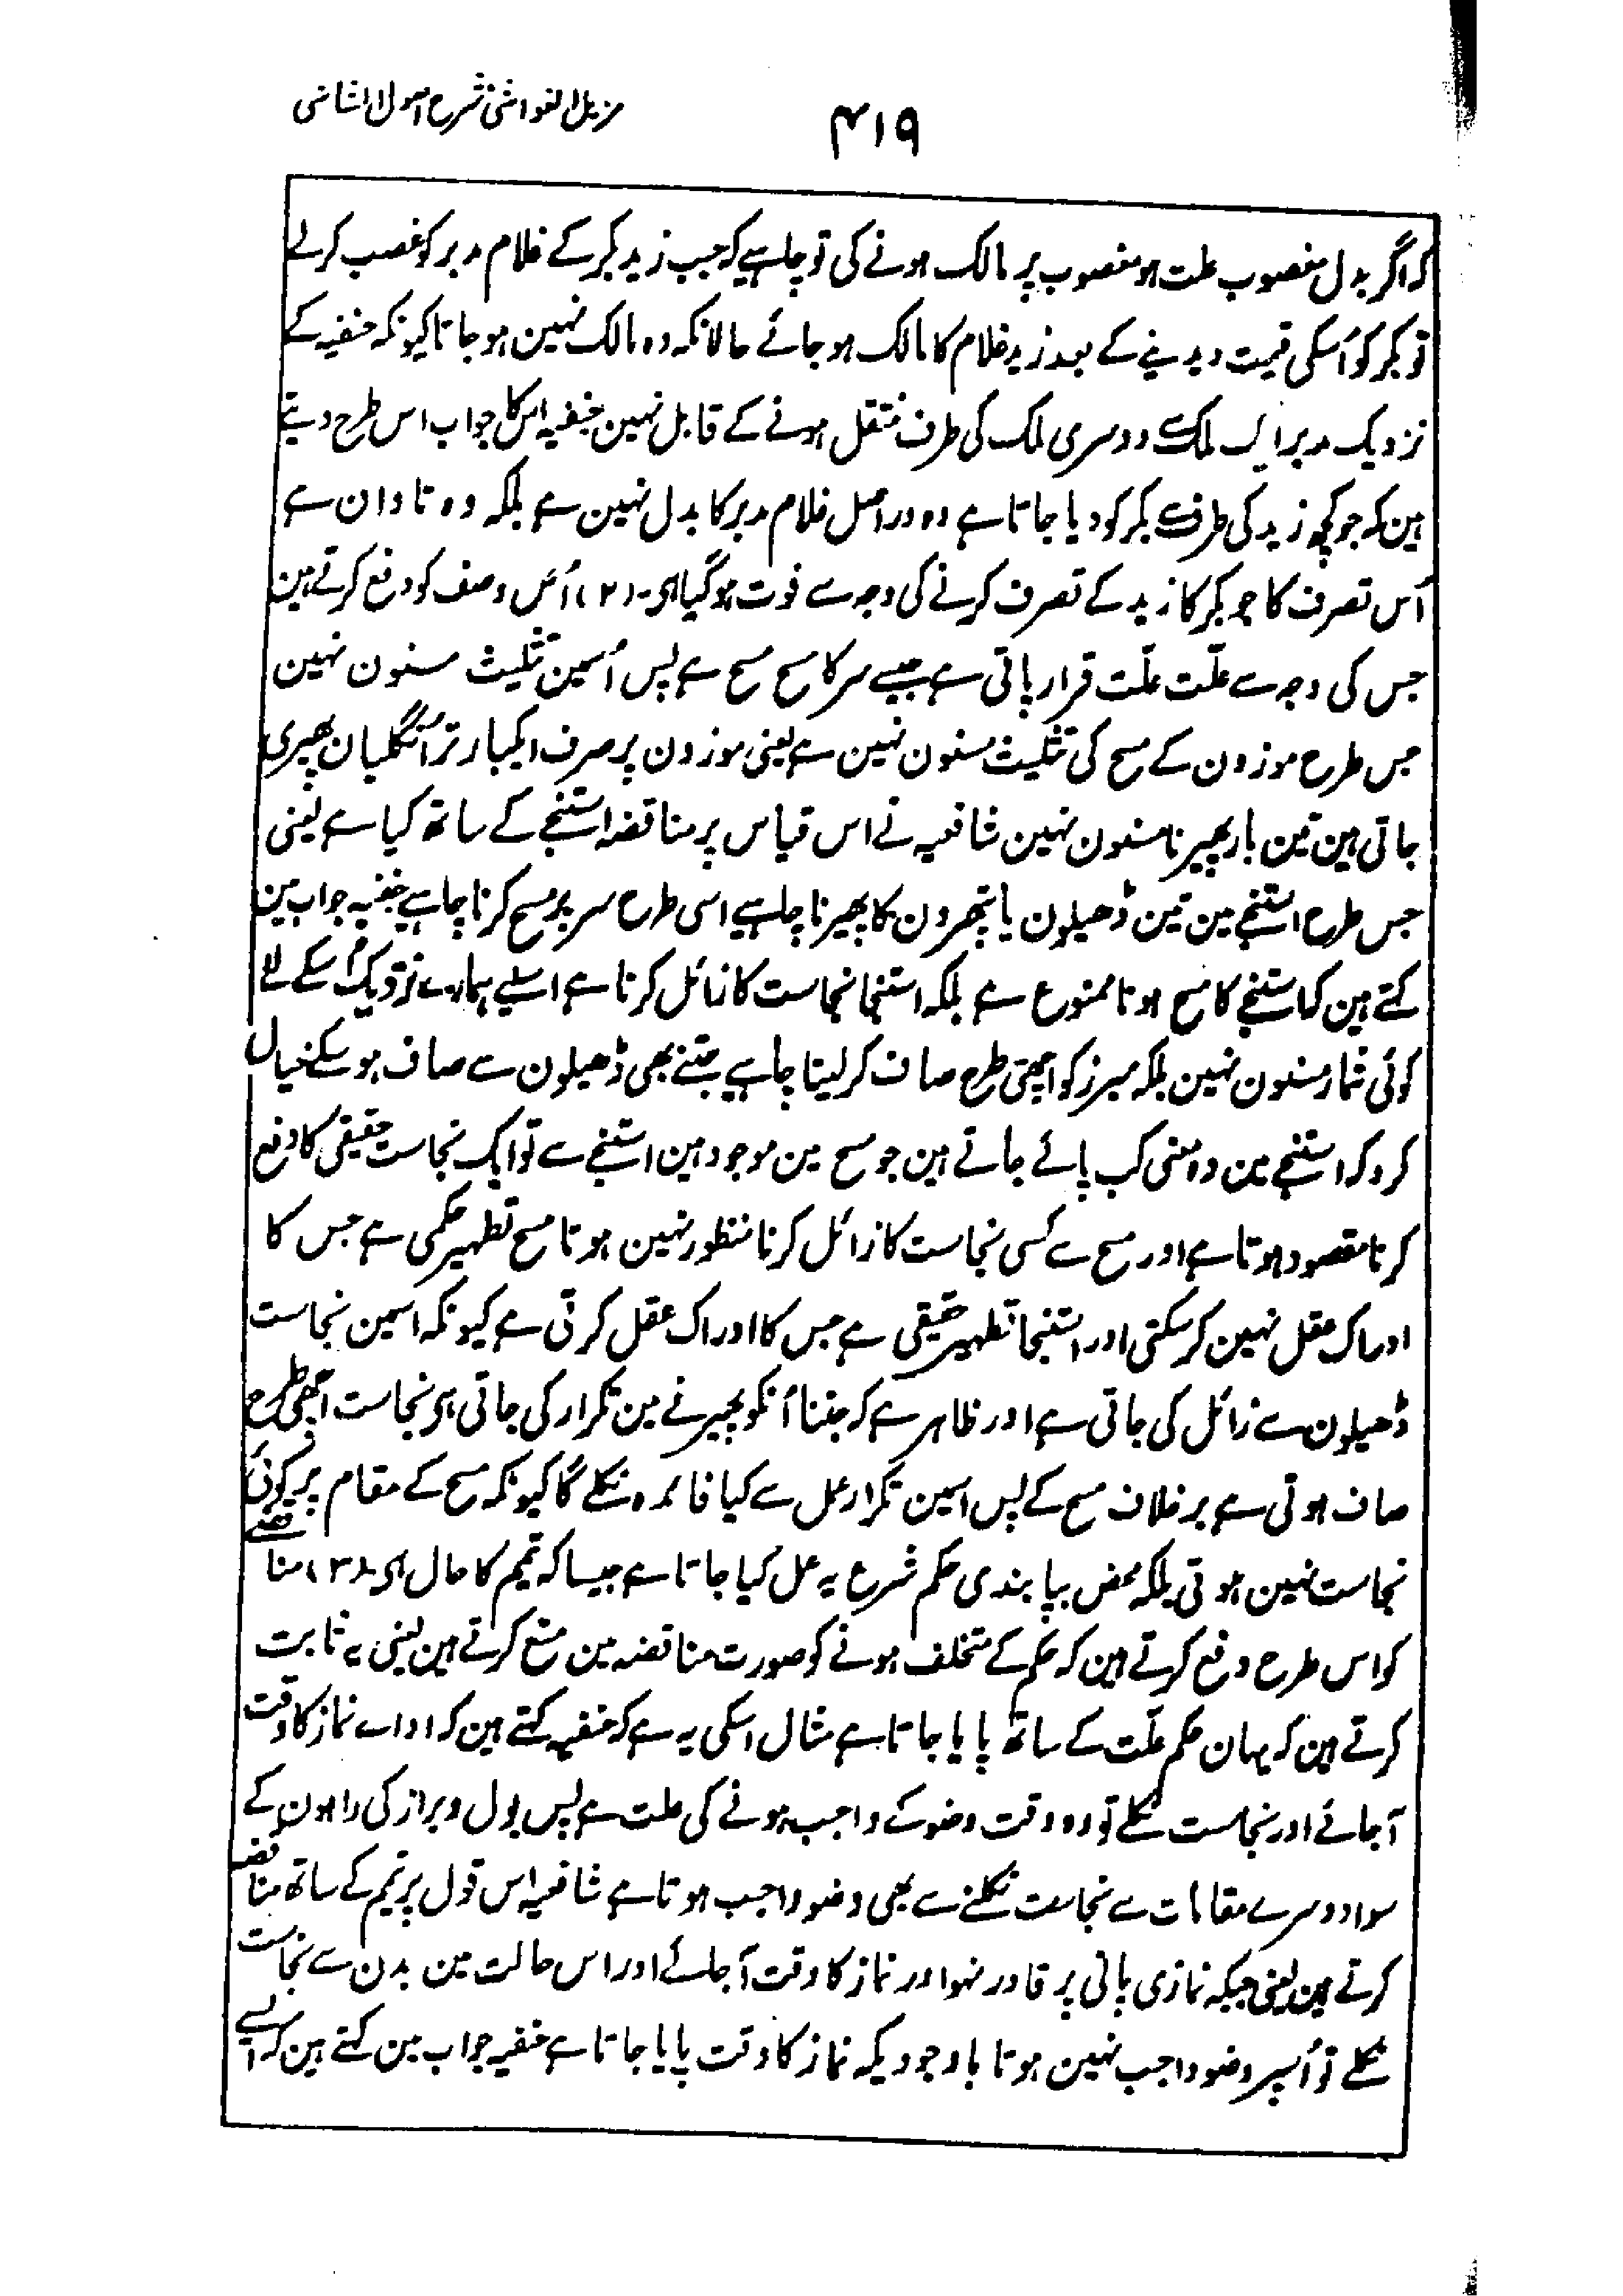 مزیل الغواشی شرح اصول الشاشی
۴۱۹
کہ اگر بدل مغصوب علت ہو مغصوب پر مالک ہونے کی تو چاہیے کہ جب زید بکر کے غلام مدبر کو غصب کرلے
تو بکر کو اُسکی قیمت دیدینے کے بعد زید غلام کا مالک ہو جائے حالانکہ وہ مالک نہین ہو جاتا کیونکہ حنفیہ کے
نزدیک مدبر ایک ملک سے دوسری ملک کی طرف منتقل ہونے کے قابل نہین حنفیہ اس کا جواب اس طرح دیتے
ہین کہ جو کچھ زید کی طرف سے بکر کو دیا جاتا ہے وہ در اصل غلام مدبر کا بدل نہین ہے بلکہ وہ تاوان ہے
اُس تصرف کا جو بکر کا زید کے تصرف کرنے کی وجہ سے فوت ہو گیا ہی۔ (۲) اُس وصف کو دفع کرتے ہین
جس کی وجہ سے علّت علّت قرار پاتی ہے جیسے سر کا مسح مسح ہے پس اُسمین تثلیث مسنون نہین
جس طرح موزون کے مسح کی تثلیث مسنون نہین ہے یعنی موزون پر صرف ایکبار تر اُنگلیان پھیری
جاتی ہین تین بار پھیرنا مسنون نہین شافعیہ نے اس قیاس پر مناقضہ استنجے کے ساتھ کیا ہے یعنی
جس طرح استنجے مین تین ڈھیلون یا پتھرون کا پھیرنا چاہیے اسی طرح سر پر مسح کرنا چاہیے حنفیہ جواب مین
کہتے ہین کہ استنجے کا مسح ہونا ممنوع ہے بلکہ استنجا نجاست کا زائل کرنا ہے اسلیے ہمارے نزدیک اُسکے لئے
کوئی شمار مسنون نہین بلکہ مبرز کو اچھی طرح صاف کر لینا چاہیے جتنے بھی ڈھیلون سے صاف ہو سکے خیال
کرو کہ استنجے مین وہ معنی کب پائے جاتے ہین جو مسح مین موجود ہین استنجے سے تو ایک نجاست حقیقی کا دفع
کرنا مقصود ہوتا ہے اور مسح سے کسی نجاست کا زائل کرنا منظور نہین ہوتا مسح تطہیر حکمی ہے جس کا
ادراک عقل نہین کر سکتی اور استنجا تطہیر حقیقی ہے جس کا ادراک عقل کرتی ہے کیونکہ اسمین نجاست
ڈھیلون سے زائل کی جاتی ہے اور ظاہر ہے کہ جتنا اُنکو پھیرنے مین تکرار کی جاتی ہی نجاست اچھی طرح
صاف ہوتی ہے بر خلاف مسح کے پس اسمین تکرار عمل سے کیا فائدہ نکلے گا کیونکہ مسح کے مقام پر کوئی
نجاست نہین ہوتی بلکہ محض بپابندی حکم شرع یہ عمل کیا جاتا ہے جیسا کہ تیمم کا حال ہی۔ (۳) مناقضے
کو اس طرح دفع کرتے ہین کہ حکم کے متخلف ہونے کو صورت مناقضہ مین منع کرتے ہین یعنی یہ ثابت
کرتے ہین کہ یہان حکم علّت کے ساتھ پایا جاتا ہے مثال اسکی یہ ہے کہ حنفیہ کہتے ہین کہ اداے نماز کا وقت
آجائے اور نجاست نکلے تو وہ وقت وضو کے واجب ہونے کی علت ہے پس بول و براز کی راہون کے
سوا دوسرے مقامات سے نجاست نکلنے سے بھی وضو واجب ہوتا ہے شافعیہ اس قول پر تیمم کے ساتھ مناقضہ
کرتے ہین یعنی جبکہ نمازی پانی پر قادر نہو اور نماز کا وقت آجائے اور اس حالت مین بدن سے نجاست
نکلے تو اُسپر وضو واجب نہین ہوتا باوجودیکہ نماز کا وقت پایا جاتا ہے حنفیہ جواب مین کہتے ہین کہ ایسے